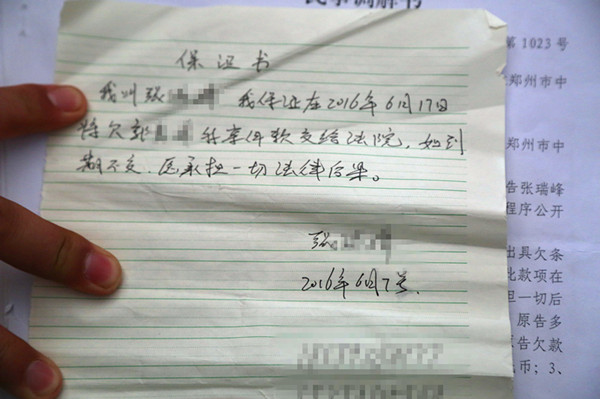 民事调解书
第 1023 号
保证书
郑州市中
我叫张 我保证在2016年6月17日
将欠郭 执案件款交给法院，如到
郑州市中
期不交，愿承担一切法律后果。
告张瑞峰
程序公开
张
出具欠条
此款项在
2016年6月7号.
担一切后
原告多
原告欠款
币；3、